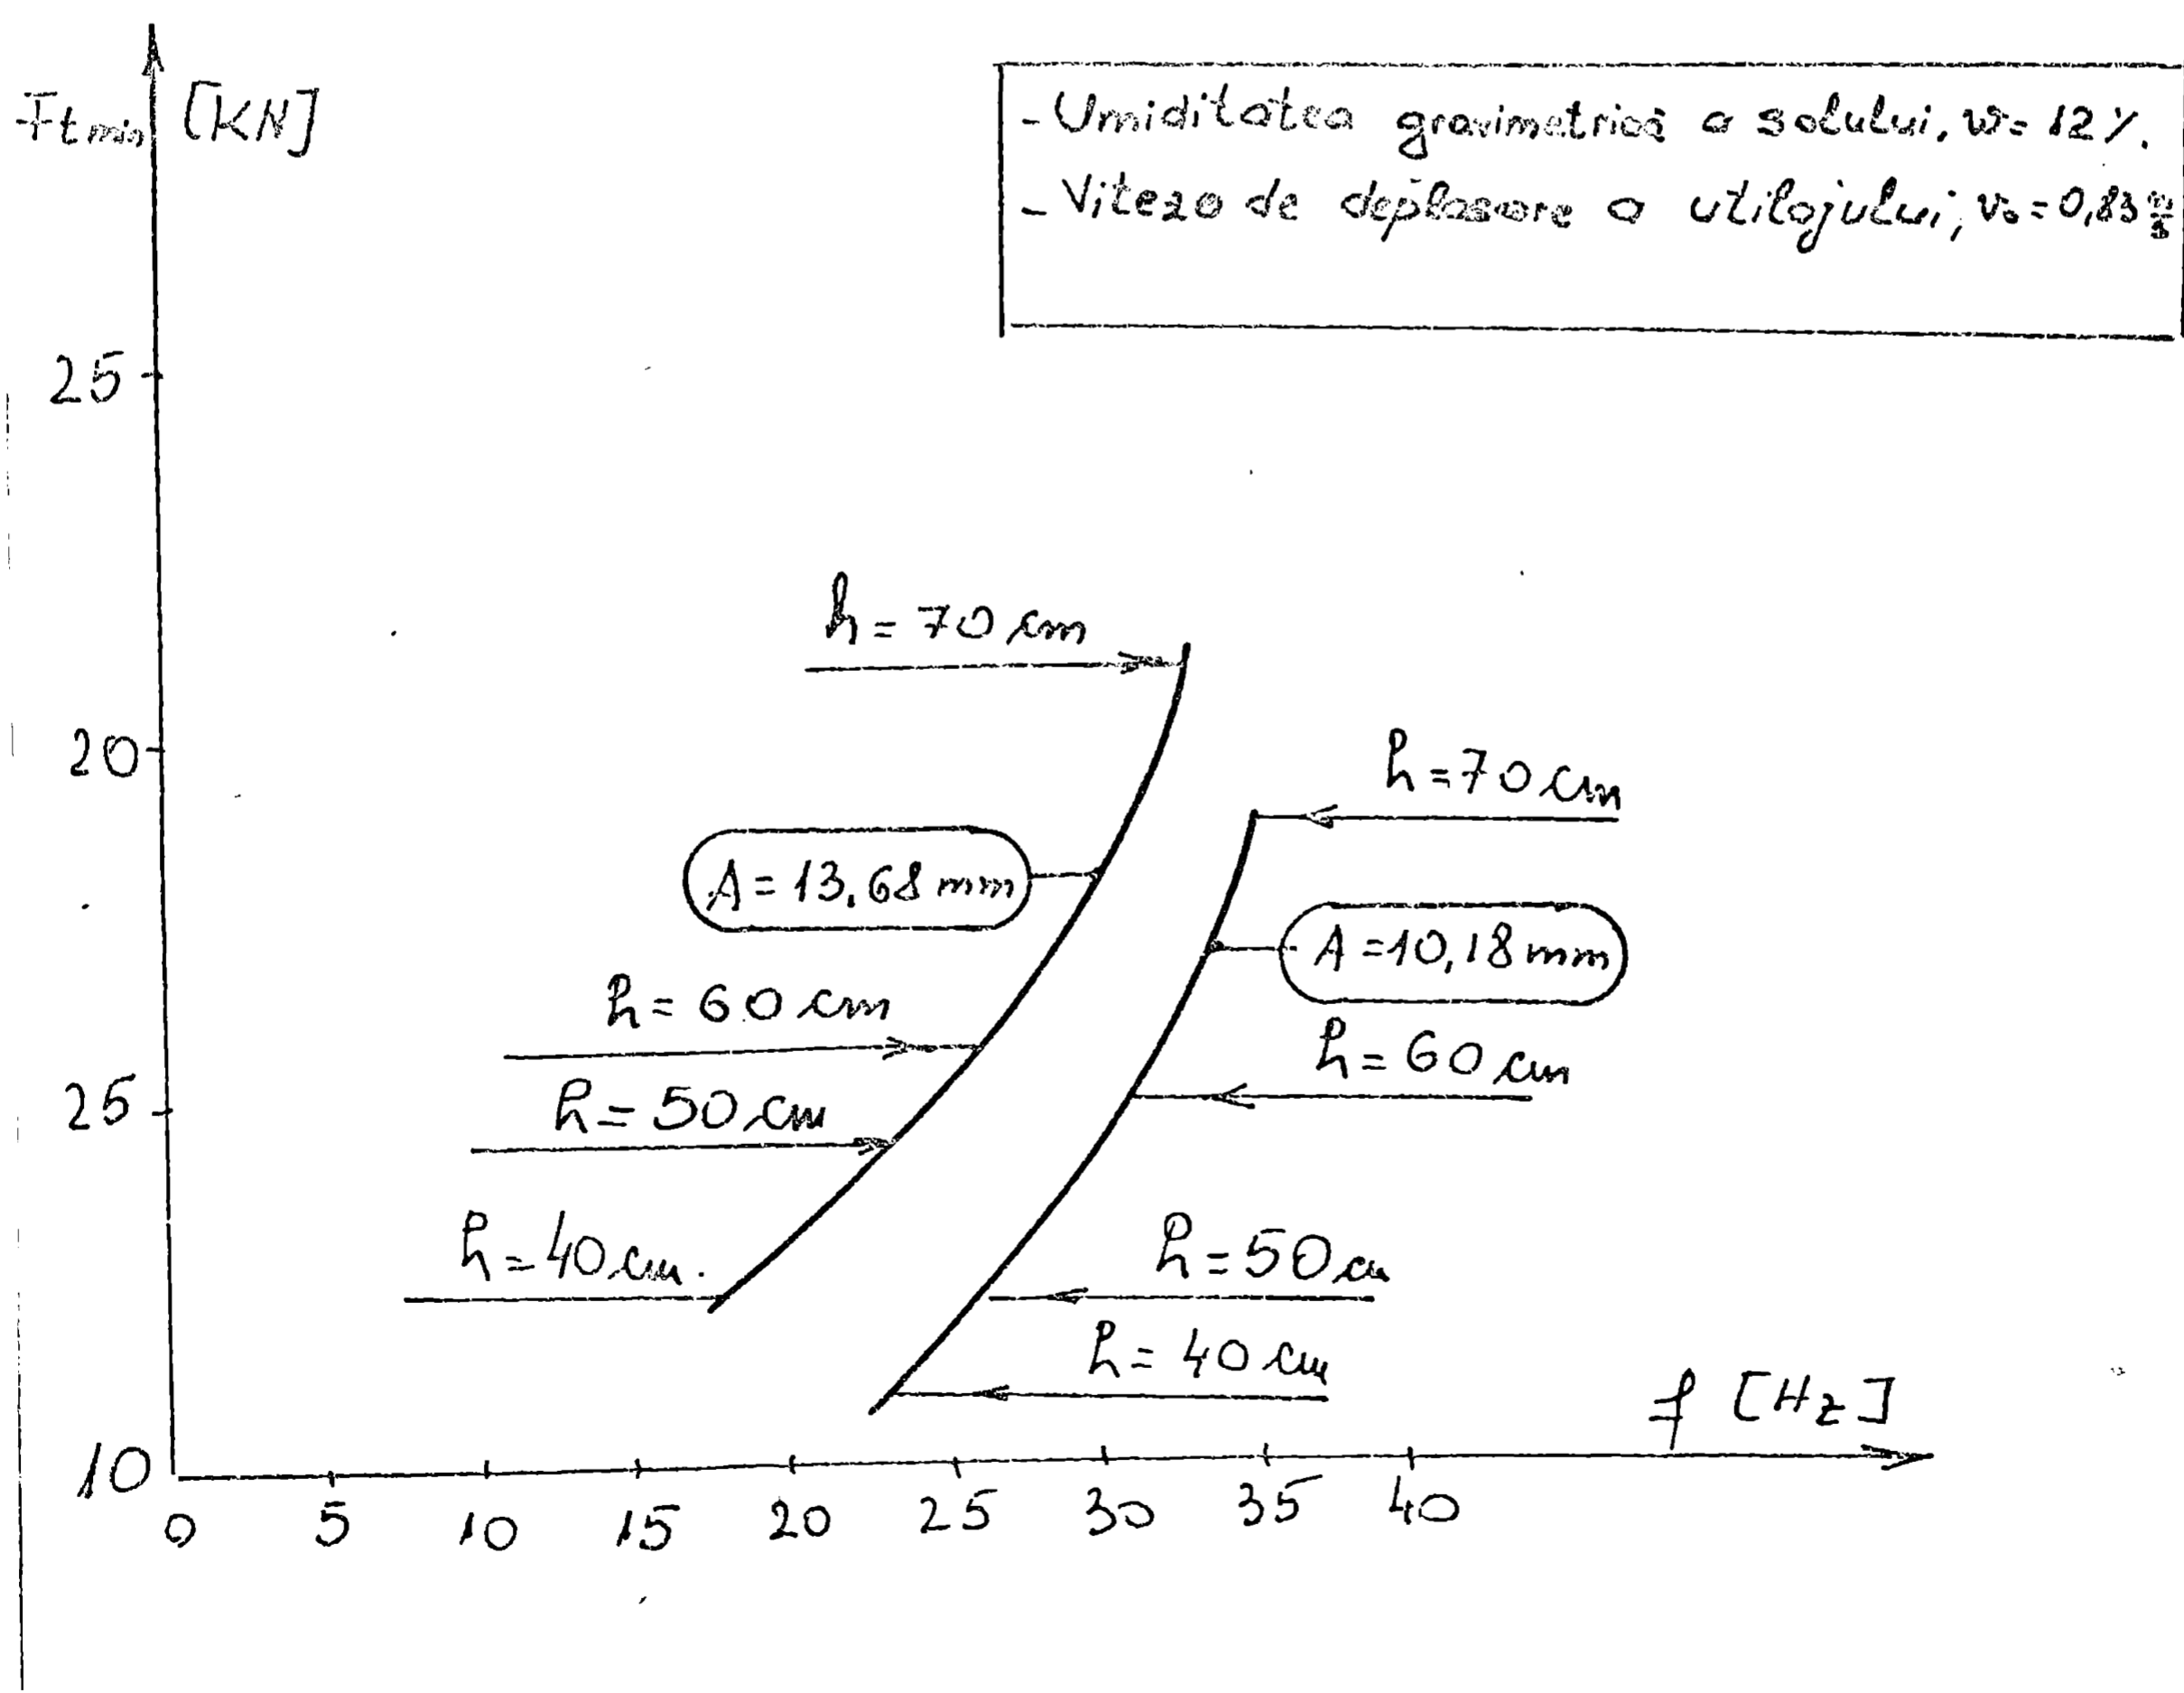 Ftmin [KN]
- Umiditatea gravimetrică a solului, w = 12%.
- Viteza de deplasare a utilajului, v₀ = 0,83 m/s
25
h = 70 cm
20
h = 70 cm
A = 13,68 mm
A = 10,18 mm
h = 60 cm
h = 60 cm
25
h = 50 cm
h = 40 cm.
h = 50 cm
h = 40 cm
f [Hz]
10
0 5 10 15 20 25 30 35 40